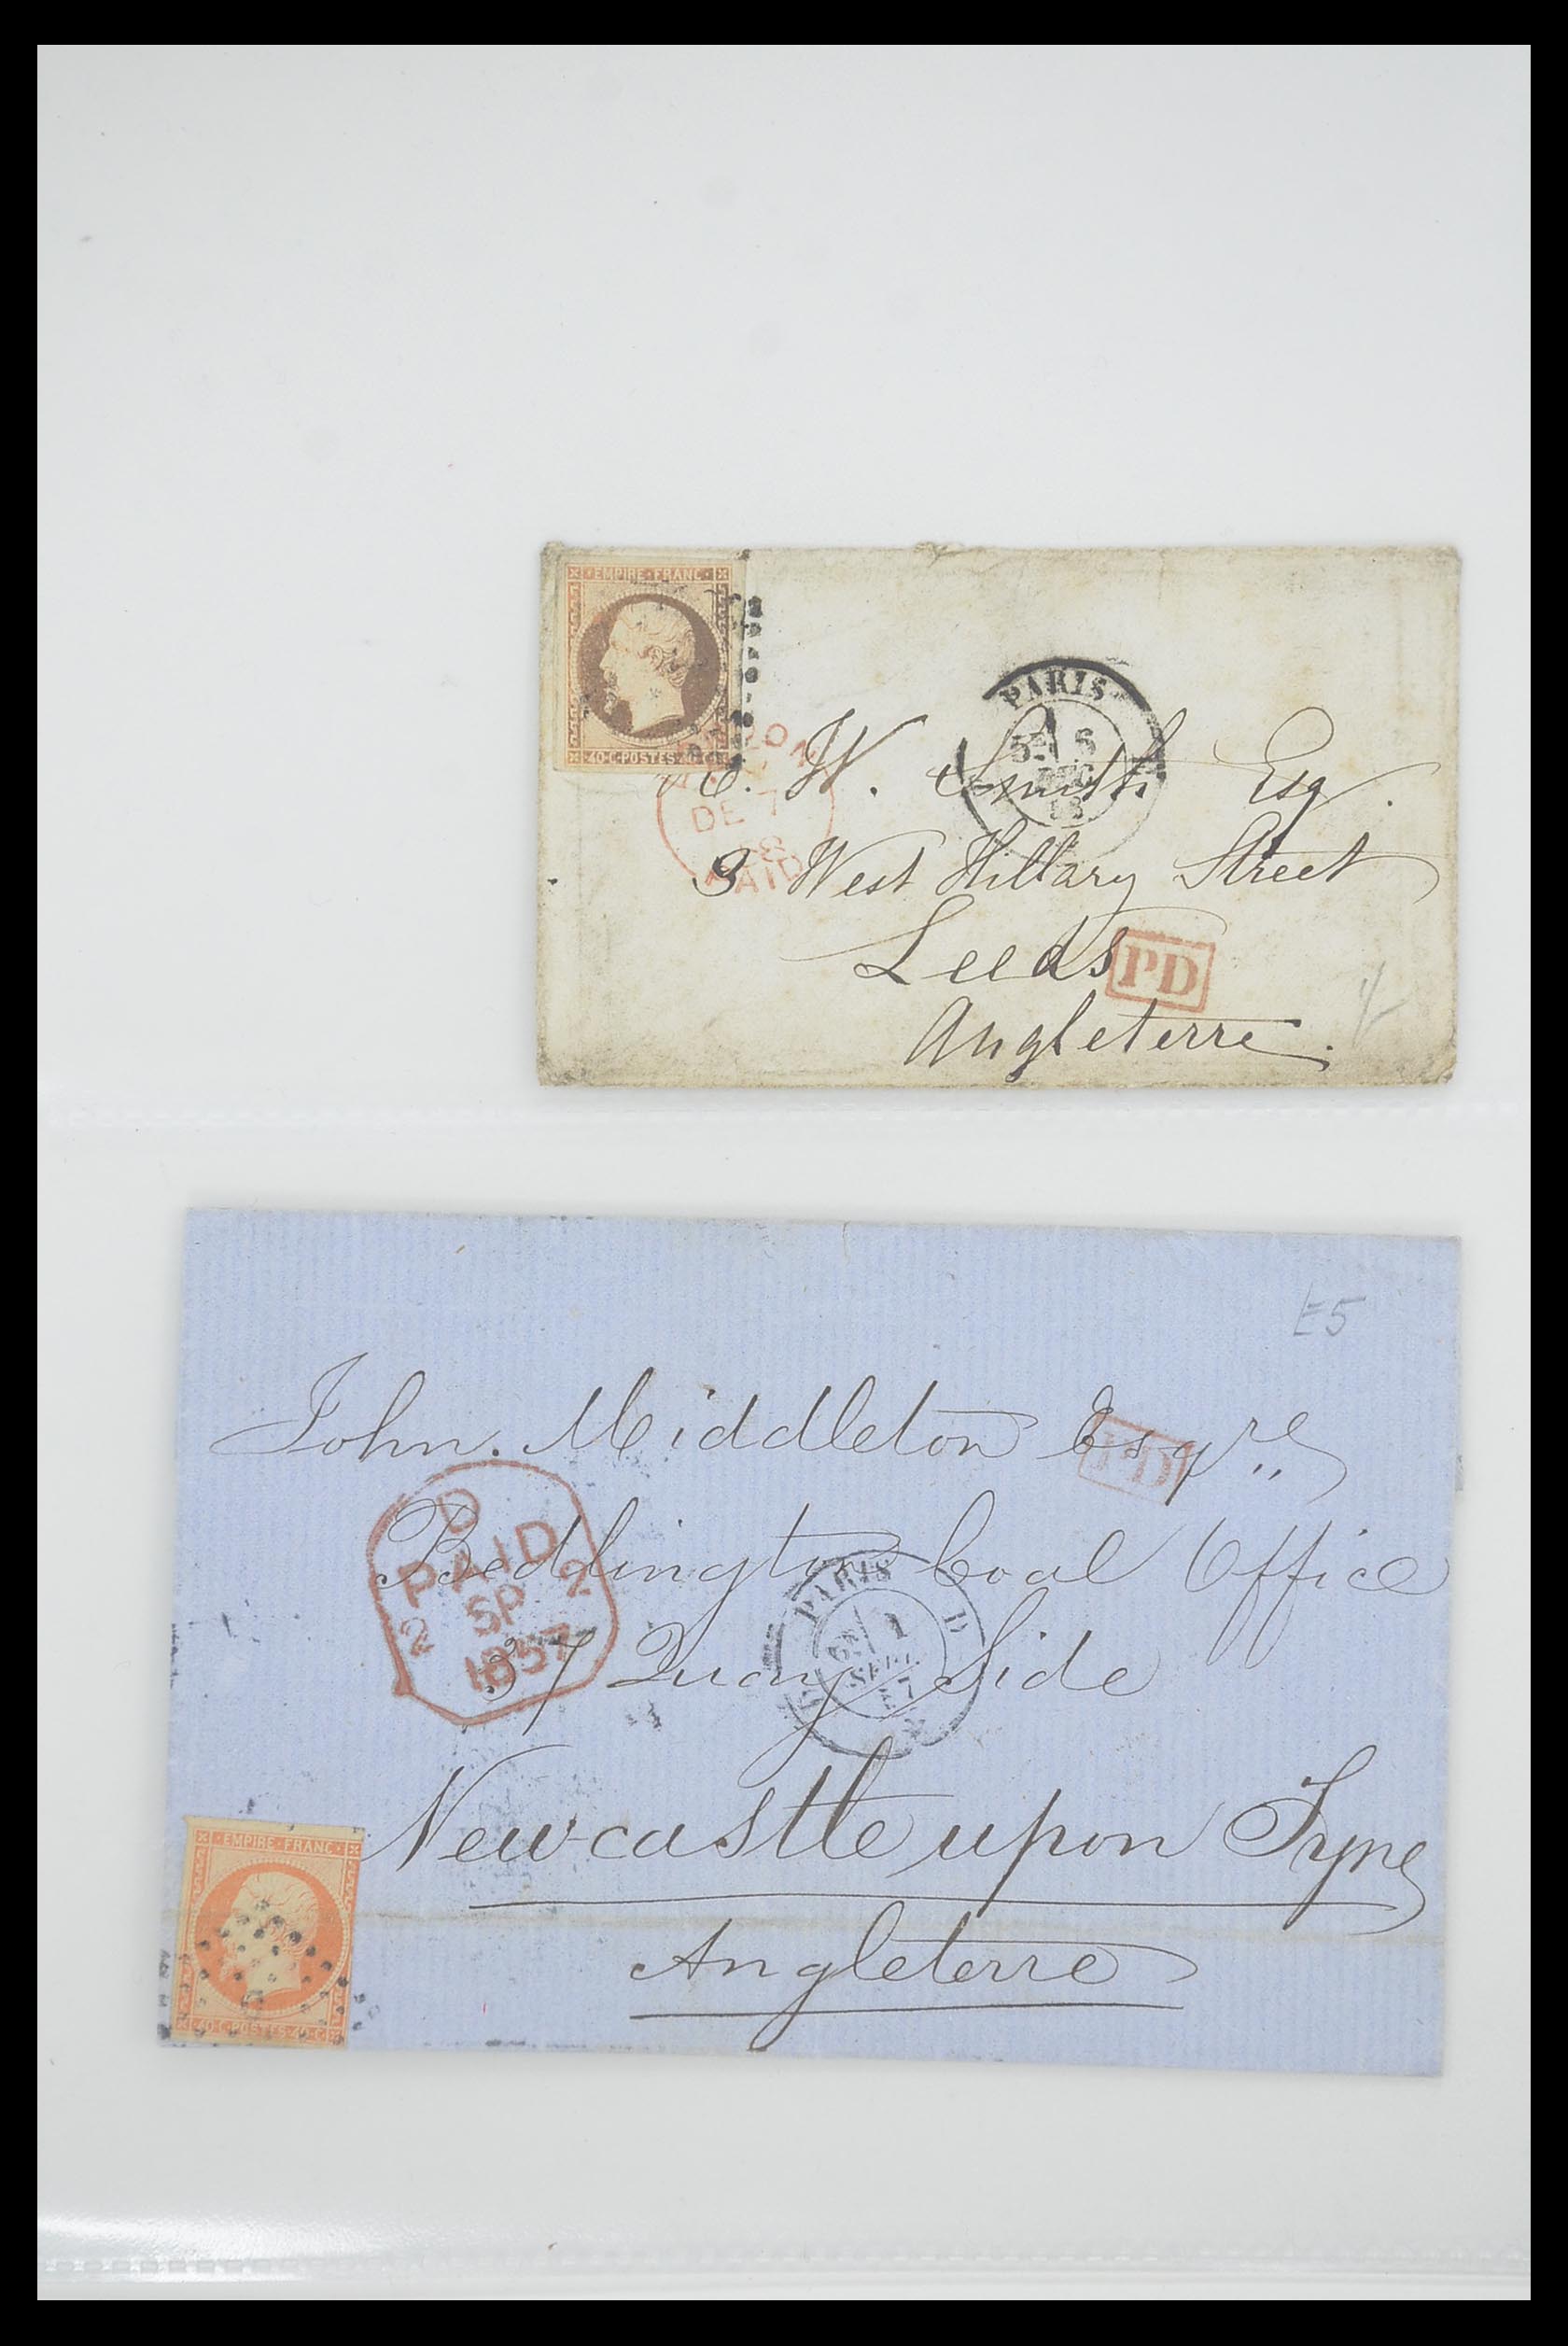 EMPIRE · FRANC ·
40·C·POSTES·40·C
PARIS
6
DEC
DE 7
PAID
W. Smith Esq.
3 West Hillary Street
Leeds
PD
Angleterre.
E5
John. Middleton Esqre
PD
D
PAID
2 SP 2
1857
Bedlington Coal Office
PARIS
1
SEPT.
57
D
37 Quay Side
Newcastle upon Tyne
Angleterre
EMPIRE · FRANC ·
40·C·POSTES·40·C